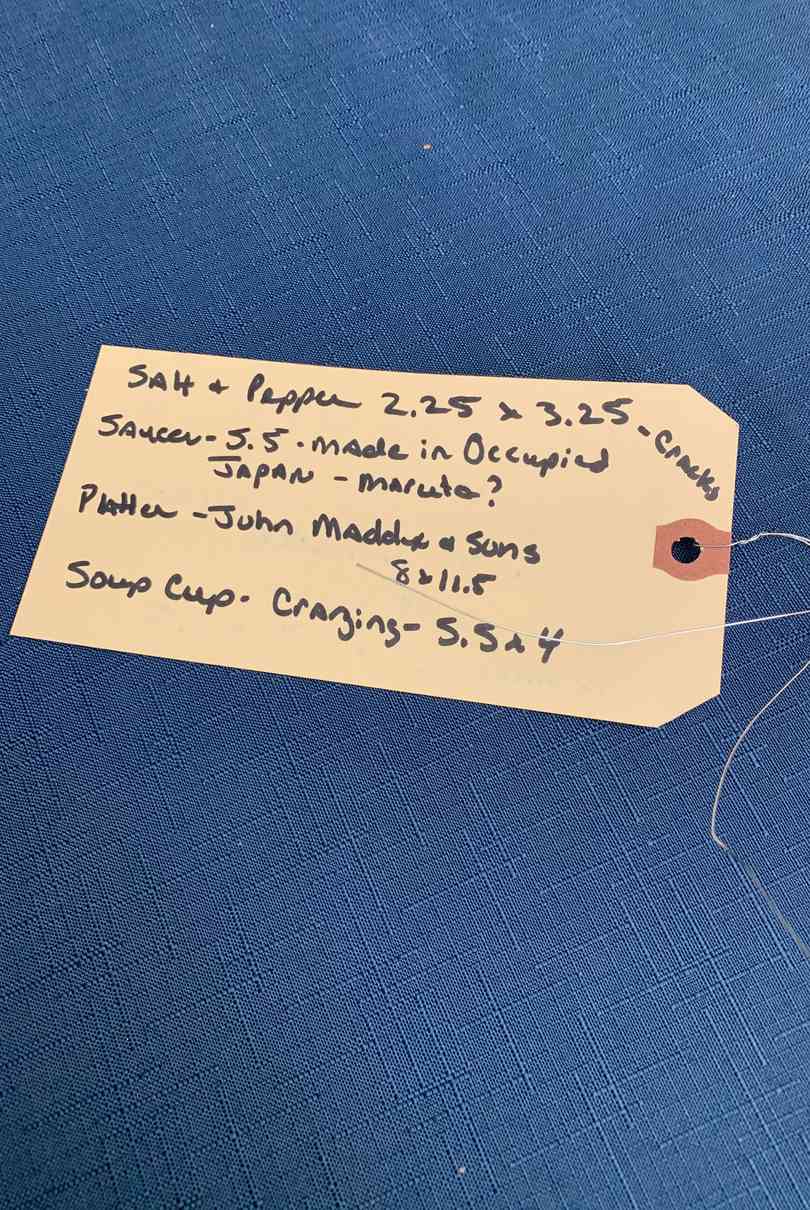 Salt & Pepper 2.25 x 3.25 - Cracks
Saucer - 5.5 · made in Occupied
JAPAN - Maruta?
Platter - John Maddux & Sons
8x11.5
Soup Cup - Crazing - 5.5 x 4